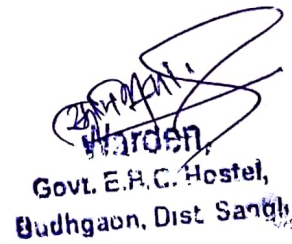 Warden,
Govt. E.H.C. Hostel,
Budhgaon, Dist. Sangli,